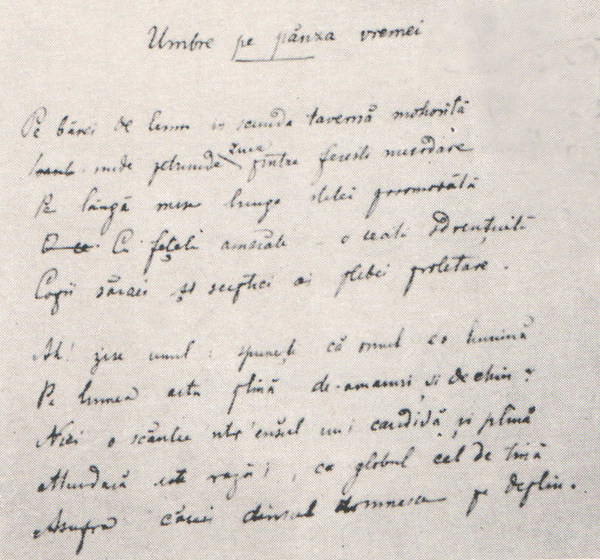 Umbre pe pânza vremei
Pe bănci de lemn in scunda tavernă mohorîtă
unde petrunde ziua pintre feresti murdare
Pe lângă mese lunge stetei posomorîtă
Cu fețele o ceată sdrențuită
Copii săraci și sceptici ai plebei proletare.
Ah! zise unul: spuneți că omul e o lumină
Pe lumea asta plină de-amaruri și de chin?
Nici o scântee 'ntr'ensul nu-i candidă și plină
Murdară este raza-i, ca globul cel de tină
Asupra cărui dînsul domnește pe deplin.